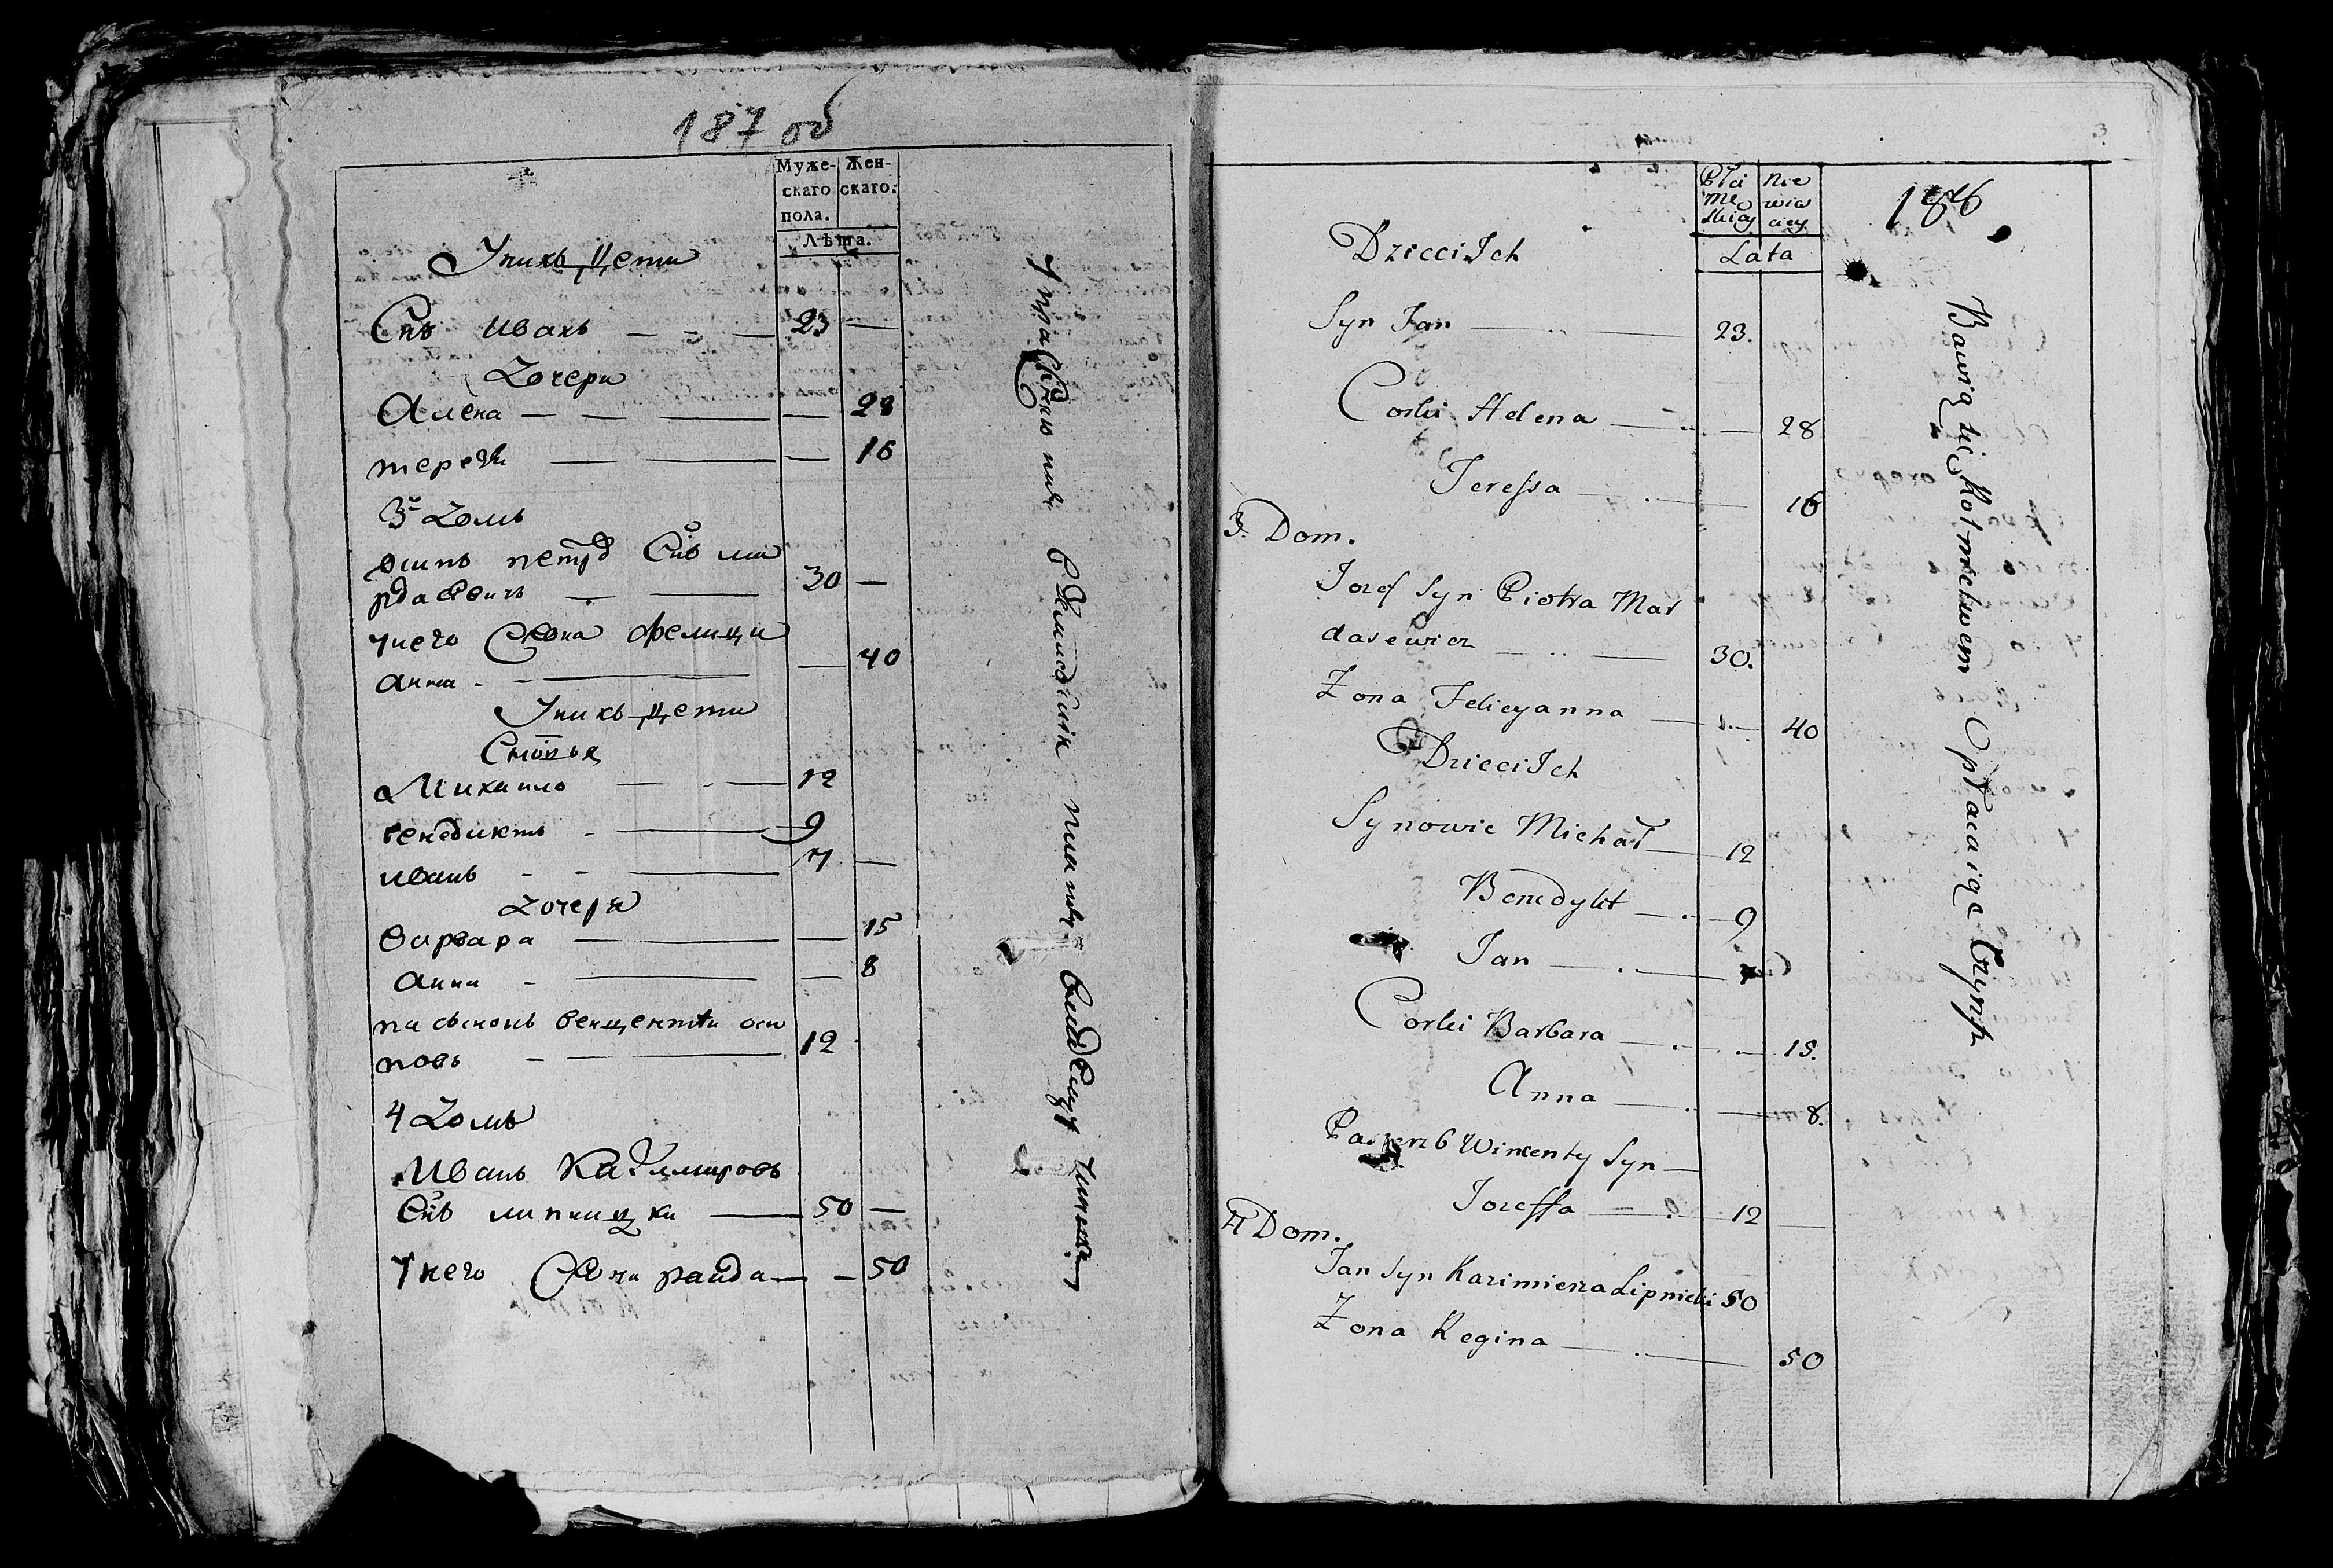 187 об
Муже-
скаго
пола.
Жен-
скаго.
Лѣта.
Уних дети
Снъ иванъ — — — 23 —
Дочери
Алена — — — — 28
терезя — — — 16
3 Домъ
осипъ петр Снъ ма
рдасевичъ — — 30 —
унего Жена Фелици
анна — — 40
Унихъ дети
Сыновья
Михаило — — 12
венедиктъ — — 9
иванъ — — 7 —
Дочери
варвара — — 15
анна — — 8
пасынокъ венцентъ оси
повъ — — 12
4 Домъ
Иванъ Казимировъ
Снъ липницки — 50 —
унего Жена раида — — 50
платѧ
Płci
męskiey
Nie
wia
ciey
Lata
186
Dzieci Ich
Syn Jan — 23.
Corki Helena — 28
Teressa — 16
3. Dom.
Jozef Syn Piotra Mar
dasewicz — 30.
Zona Felicyanna — 40
Dzieci Ich
Synowie Michał — 12
Benedykt — 9
Jan —
Corki Barbara — 15.
Anna — 8.
Pasierzb Wincenty Syn —
Jozeffa — 12
4 Dom.
Jan Syn Kazimierza Lipnicki 50
Zona Regina — 50
Bawią się Rolnictwem Opłacaiąc Czynsz